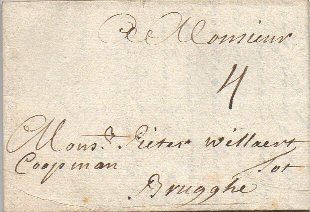 A Monsieur
4
Mons.r Pieter Willaert
Coopman tot
Brugghe